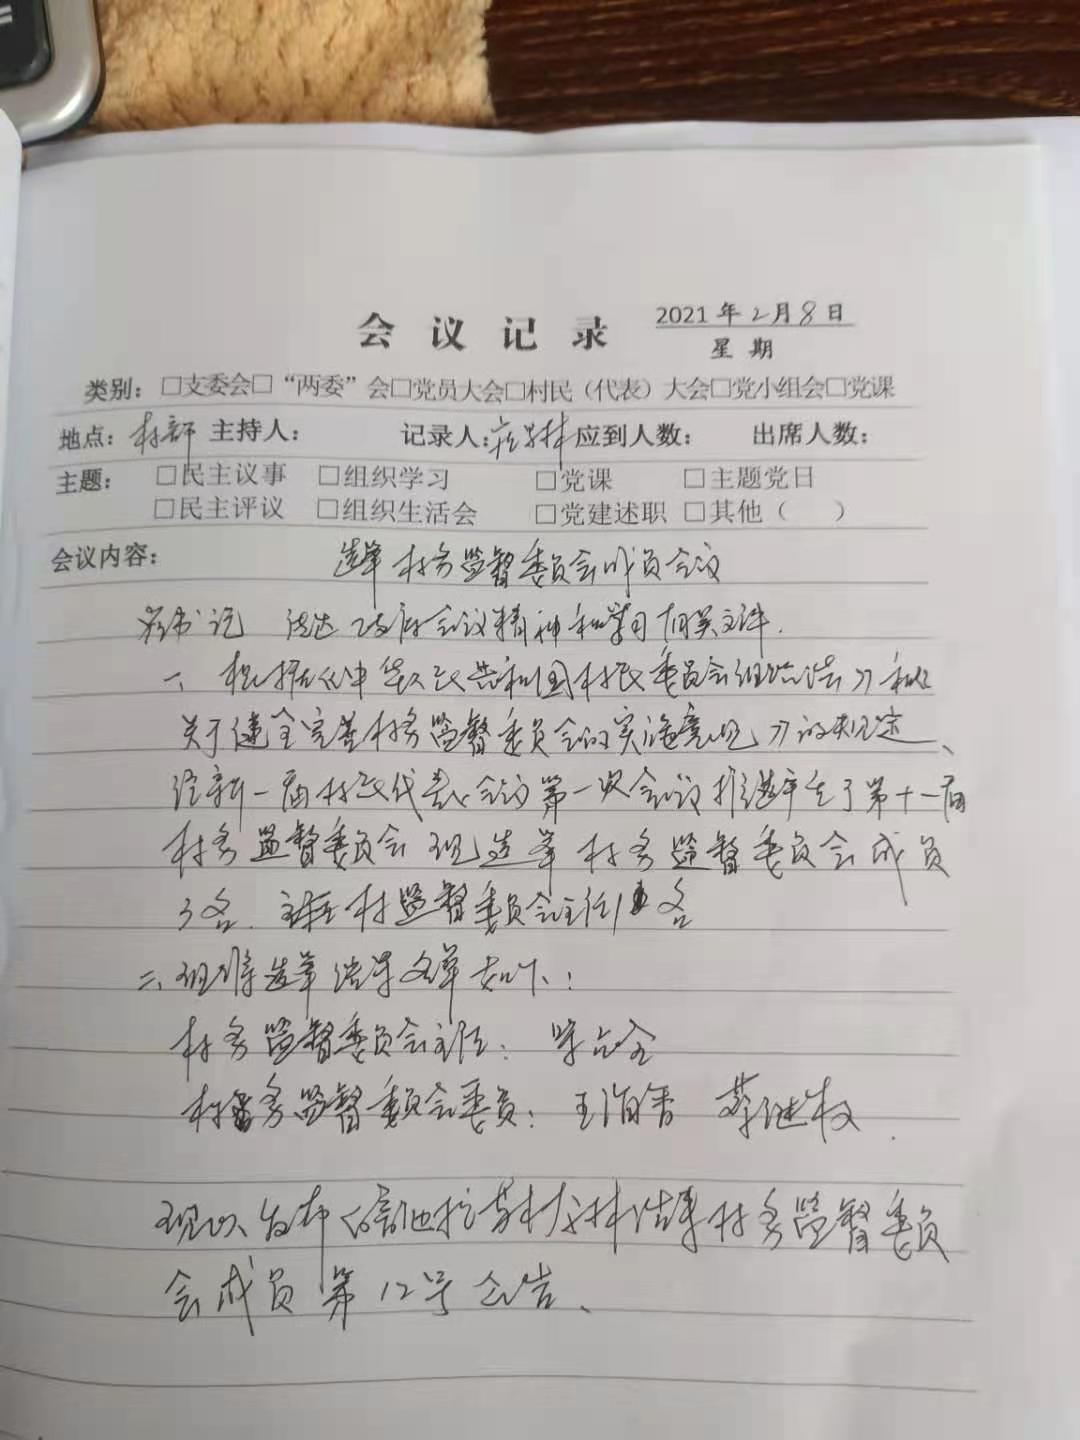 会议记录 2021年2月8日
星期
类别：□支委会□“两委”会□党员大会□村民（代表）大会□党小组会□党课
地点：村部 主持人： 记录人： 应到人数： 出席人数：
主题： □民主议事 □组织学习 □党课 □主题党日
□民主评议 □组织生活会 □党建述职 □其他（ ）
会议内容： 选举村务监督委员会成员会议
书记 传达政府会议精神和学习相关文件.
一、根据《中华人民共和国村民委员会组织法》和《
关于健全完善村务监督委员会的实施意见》的规定、
经新一届村民代表会议第一次会议推选产生了第十一届
村务监督委员会 现选举村务监督委员会成员
3名. 村监督委员会主任1名
二、现将选举结果名单如下：
村务监督委员会主任：
村务监督委员会委员： 王 蔡继权
现以发布《 选举村务监督委员
会成员第12号公告、